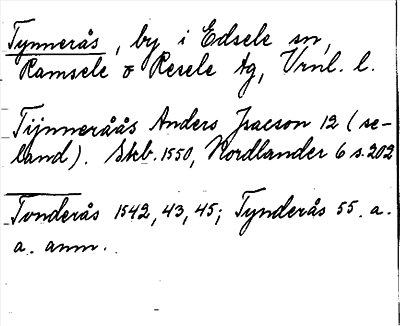 Tynnerås, by i Edsele sn,
Ramsele o Resele tg, Vrnl. l.
Tijnneråås Anders Jsacson 12 (se-
land). Skb. 1550, Nordlander 6 s. 202
Tonderås 1542, 43, 45; Tynderås 55. a.
a. anm.